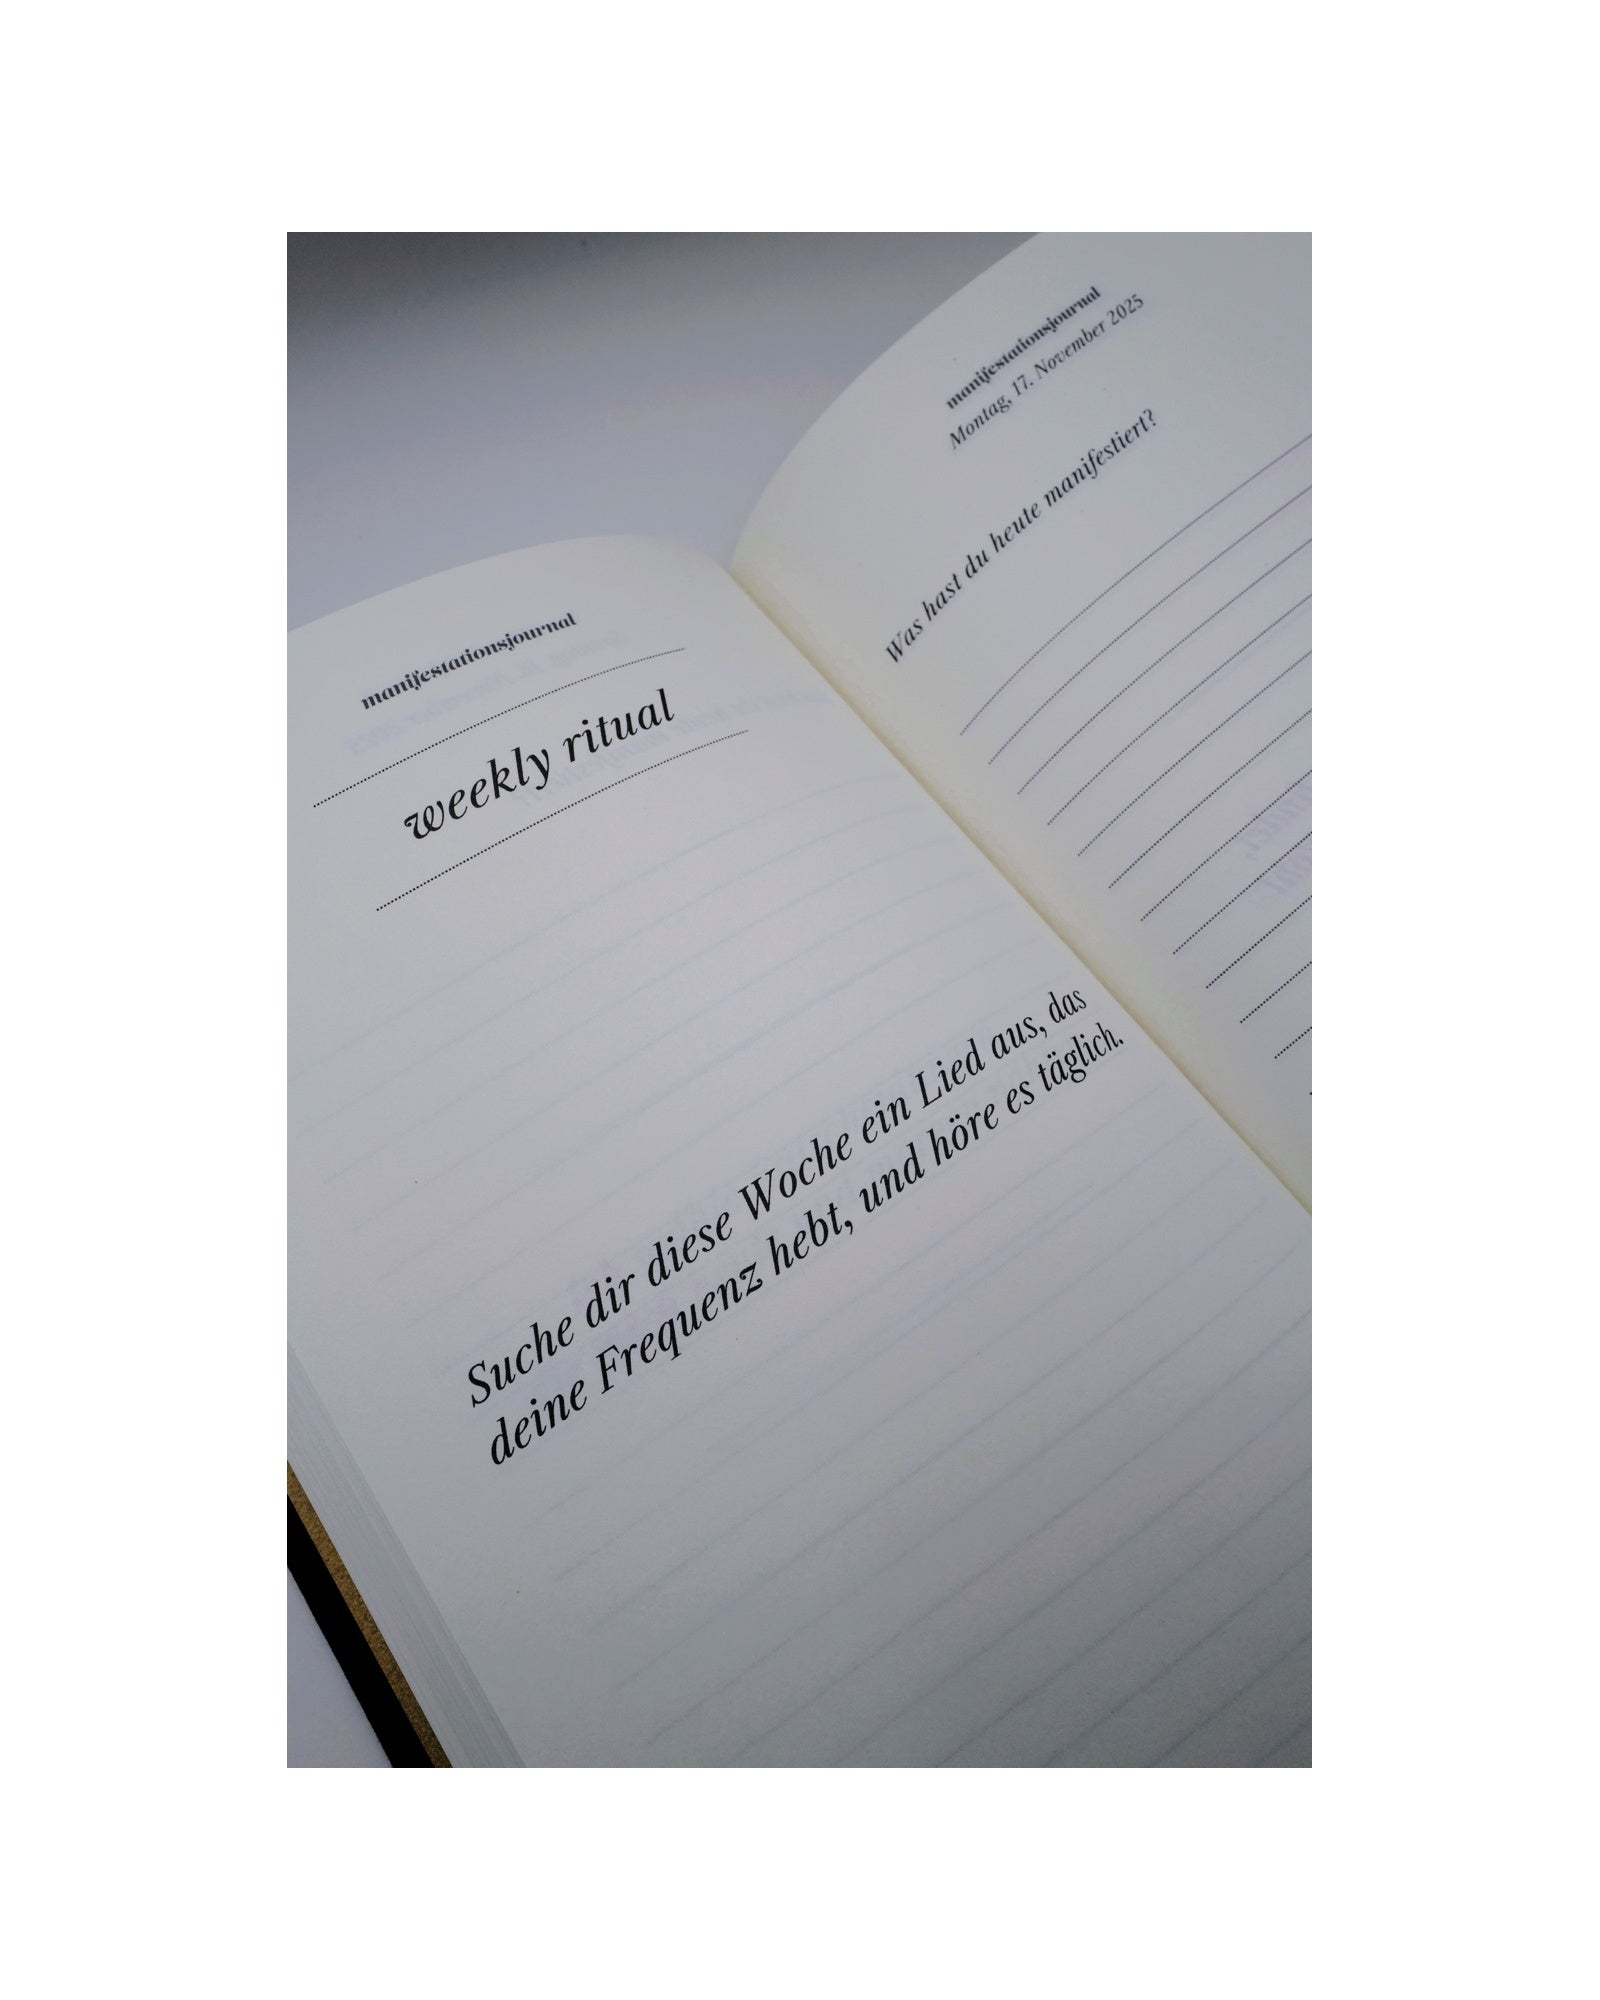 manifestationsjournal
weekly ritual
Suche dir diese Woche ein Lied aus, das
deine Frequenz hebt, und höre es täglich.
manifestationsjournal
Montag, 17. November 2025
Was hast du heute manifestiert?